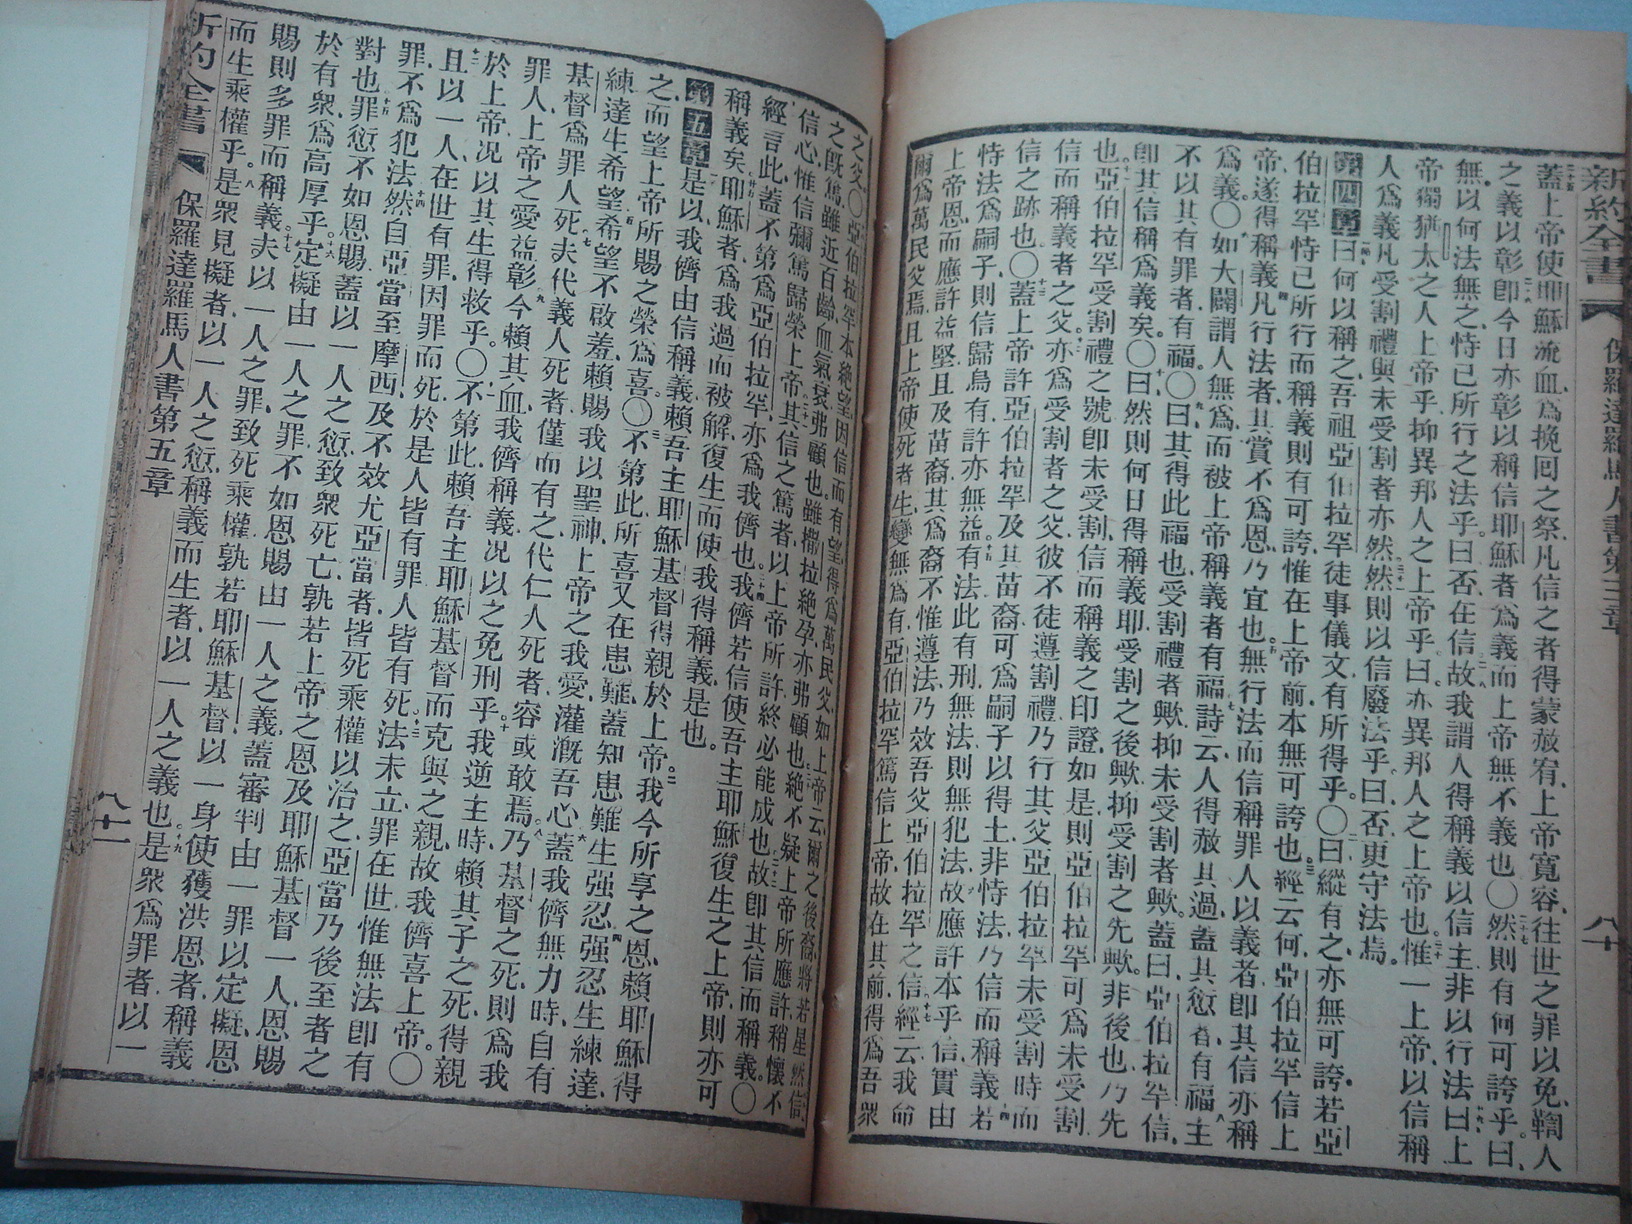 新約全書 保羅達羅馬人書第三章 八十
蓋上帝使耶穌流血、爲挽回之祭、凡信之者得蒙赦宥、上帝寬容、往世之罪以免、鞫人
之義以彰、卽今日亦彰、以稱信耶穌者爲義、而上帝無不義也〇然則有何可誇乎。曰、
無、以何法無之、恃己所行之法乎。曰、否、在信、故我謂人得稱義、以信主、非以行法、曰、上
帝獨猶太之人上帝乎、抑異邦人之上帝乎。曰、亦異邦人之上帝也。惟一上帝、以信稱
人爲義、凡受割禮與未受割者亦然、然則以信廢法乎。曰、否、更守法焉。
第四章 曰、何以稱之、吾祖亞伯拉罕徒事儀文、有所得乎。〇曰、縱有之、亦無可誇。若亞
伯拉罕恃己所行而稱義、則有可誇、惟在上帝前、本無可誇也。經云何、亞伯拉罕信上
帝、遂得稱義、凡行法者、其賞不爲恩、乃宜也。無行法而信稱罪人以義者、卽其信亦稱
爲義。〇如大闢謂人無爲而被上帝稱義者有福、詩云、人得赦其過、蓋其愆者有福、主
不以其有罪者有福。〇曰、其得此福也、受割禮者歟、抑未受割者歟。蓋曰、亞伯拉罕信、
卽其信稱爲義矣。〇曰、然則何日得稱義耶、受割之後歟、抑受割之先歟。非後也、乃先
也。亞伯拉罕受割禮之號、卽未受割、信而稱義之印證、如是則亞伯拉罕可爲未受割
信而稱義者之父、亦爲受割者之父、彼不徒遵割禮、乃行其父亞伯拉罕未受割時而
信之跡也。〇蓋上帝許亞伯拉罕及其苗裔可爲嗣子以得土、非恃法、乃信而稱義、若
恃法爲嗣子、則信歸烏有、許亦無益、有法此有刑、無法則無犯法、故應許本乎信、實由
上帝恩、而應許益堅、且及苗裔、其爲裔、不惟遵法、乃效吾父亞伯拉罕之信、經云、我命
爾爲萬民父焉、且上帝使死者生、變無爲有、亞伯拉罕篤信上帝、故在其前得爲吾衆
之父〇亞伯拉罕本絕望、因信而有望、得爲萬民父、如上帝云、爾之後裔、將若星然、信
之旣篤、雖近百齡、血氣衰、弗顧也、雖撒拉絕孕、亦弗顧也、絕不疑上帝所應許、稍懷不
信心、惟信彌篤、歸榮上帝、其信之篤者、以上帝所許、終必能成也、故卽其信而稱義。〇
經言此、蓋不第爲亞伯拉罕、亦爲我儕也、我儕若信使吾主耶穌復生之上帝、則亦可
稱義矣、耶穌者、爲我過而被解、復生而使我得稱義、是也。
第五章 是以我儕由信稱義、賴吾主耶穌基督、得親於上帝。我今所享之恩、賴耶穌得
之、而望上帝所賜之榮爲喜。〇不第此、所喜又在患難、蓋知患難生强忍、强忍生練達、
練達生希望、希望不啟羞、賴賜我以聖神、上帝之我愛、灌漑吾心、蓋我儕無力時、自有
基督爲罪人死、夫代義人死者、僅而有之、代仁人死者、容或敢焉、乃基督之死、則爲我
罪人、上帝之愛益彰、今賴其血、我儕稱義、况以之免刑乎。我逆主時、賴其子之死、得親
於上帝、况以其生得救乎。〇不第此、賴吾主耶穌基督而克與之親、故我儕喜上帝。〇
且以一人在世有罪、因罪而死、於是人皆有罪、人皆有死、法未立、罪在世、惟無法卽有
罪不爲犯法、然自亞當至摩西、及不效尤亞當者、皆死乘權以治之、亞當乃後至者之
對也、罪愆不如恩賜、蓋以一人之愆、致衆死亡、孰若上帝之恩、及耶穌基督一人恩賜
於有衆、爲高厚乎。定擬由一人之罪、不如恩賜由一人之義、蓋審判由一罪以定擬、恩
賜則多罪而稱義、夫以一人之罪、致死乘權、孰若耶穌基督以一身使獲洪恩者、稱義
而生乘權乎。是衆見擬者、以一人之愆、稱義而生者、以一人之義也。是衆爲罪者以一
新約全書 保羅達羅馬人書第五章 八十一